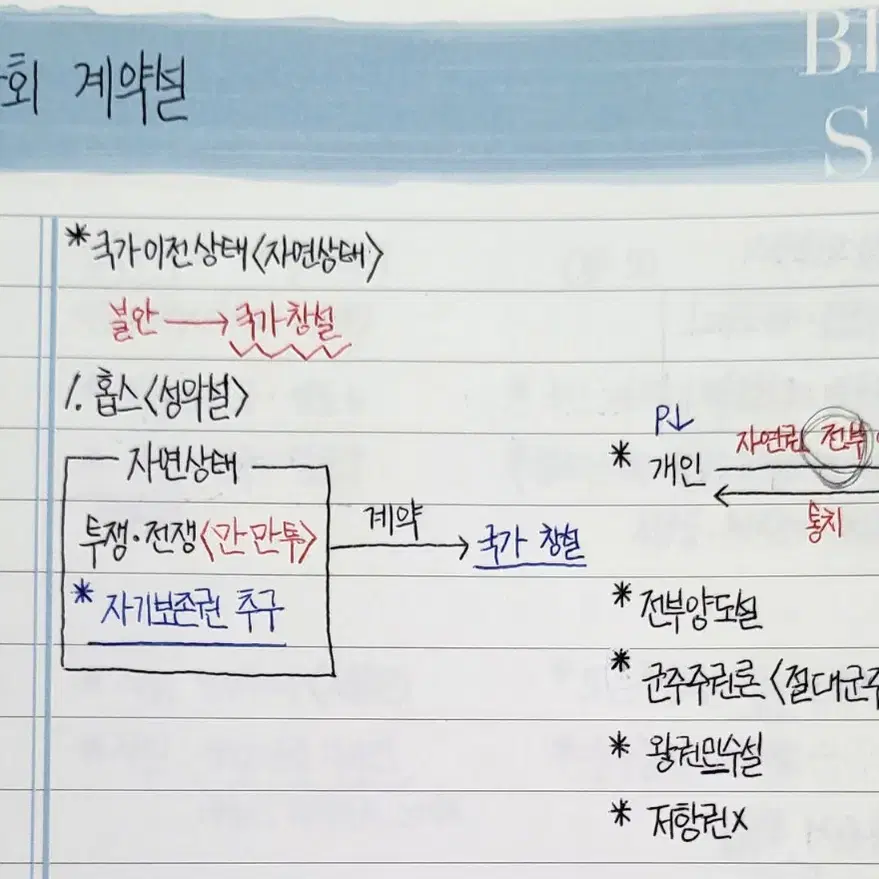 회 계약설
BI
S
*국가 이전 상태<자연상태>
불안 → 국가 창설
1. 홉스<성악설>
자연상태
투쟁·전쟁<만만투>
* 자기보존권 추구
계약
국가 창설
P↓
* 개인
자연권 전부
통치
* 전부양도설
* 군주주권론<절대군주
* 왕권민수설
* 저항권X